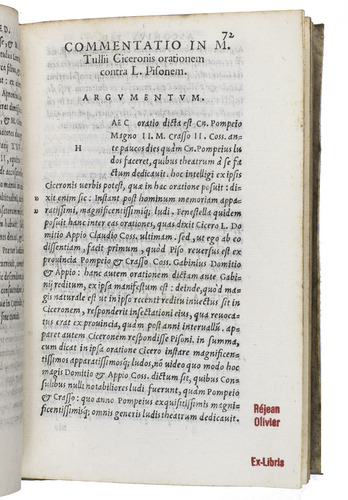 72
COMMENTATIO IN M.
Tullii Ciceronis orationem
contra L. Pisonem.
ARGVMENTVM.
HAEC oratio dicta est Cn. Pompeio
Magno II. M. Crasso II. Coss. an-
te paucos dies quàm Cn. Pompeius lu
dos faceret, quibus theatrum à se fa
ctum dedicauit. hoc intelligi ex ipsis
Ciceronis uerbis potest, qua in hac oratione posuit: di-
xit enim sic: Instant post hominum memoriam appa
ratissimi, magnificentissimiq; ludi. Fenestella quidem
posuit hanc inter eas orationes, quas dixit Cicero L. Do
mitio Appio Claudio Coss. ultimam. sed, ut ego ab eo
dissentiam, facit primum, quòd Piso reuersus est ex
prouincia Pompeio & Crasso. Coss. Gabinius Domitio
& Appio: hanc autem orationem dictam ante Gabi-
nij reditum, ex ipsa manifestum est: deinde, quòd ma
gis naturale est ut in ipso recenti reditu inuectus sit in
Ciceronem, responderit insectationi eius, qua reuoca-
tus erat ex prouincia, quàm post anni interuallū. ap
paret autem Ciceronem respondisse Pisoni. in summa,
cum dicat in ipsa oratione Cicero instare magnificen-
tissimos apparatissimosq; ludos, nō uideo quo modo hoc
magis Domitio & Appio Coss. dictum sit, quibus Con-
sulibus nulli notabiliores ludi fuerunt, quàm Pompeio
& Crasso: quo anno Pompeius exquisitissimis magni-
ficentissimisq; omnis generis ludis theatrum dedicauit.
Réjean
Olivier
Ex-Libris